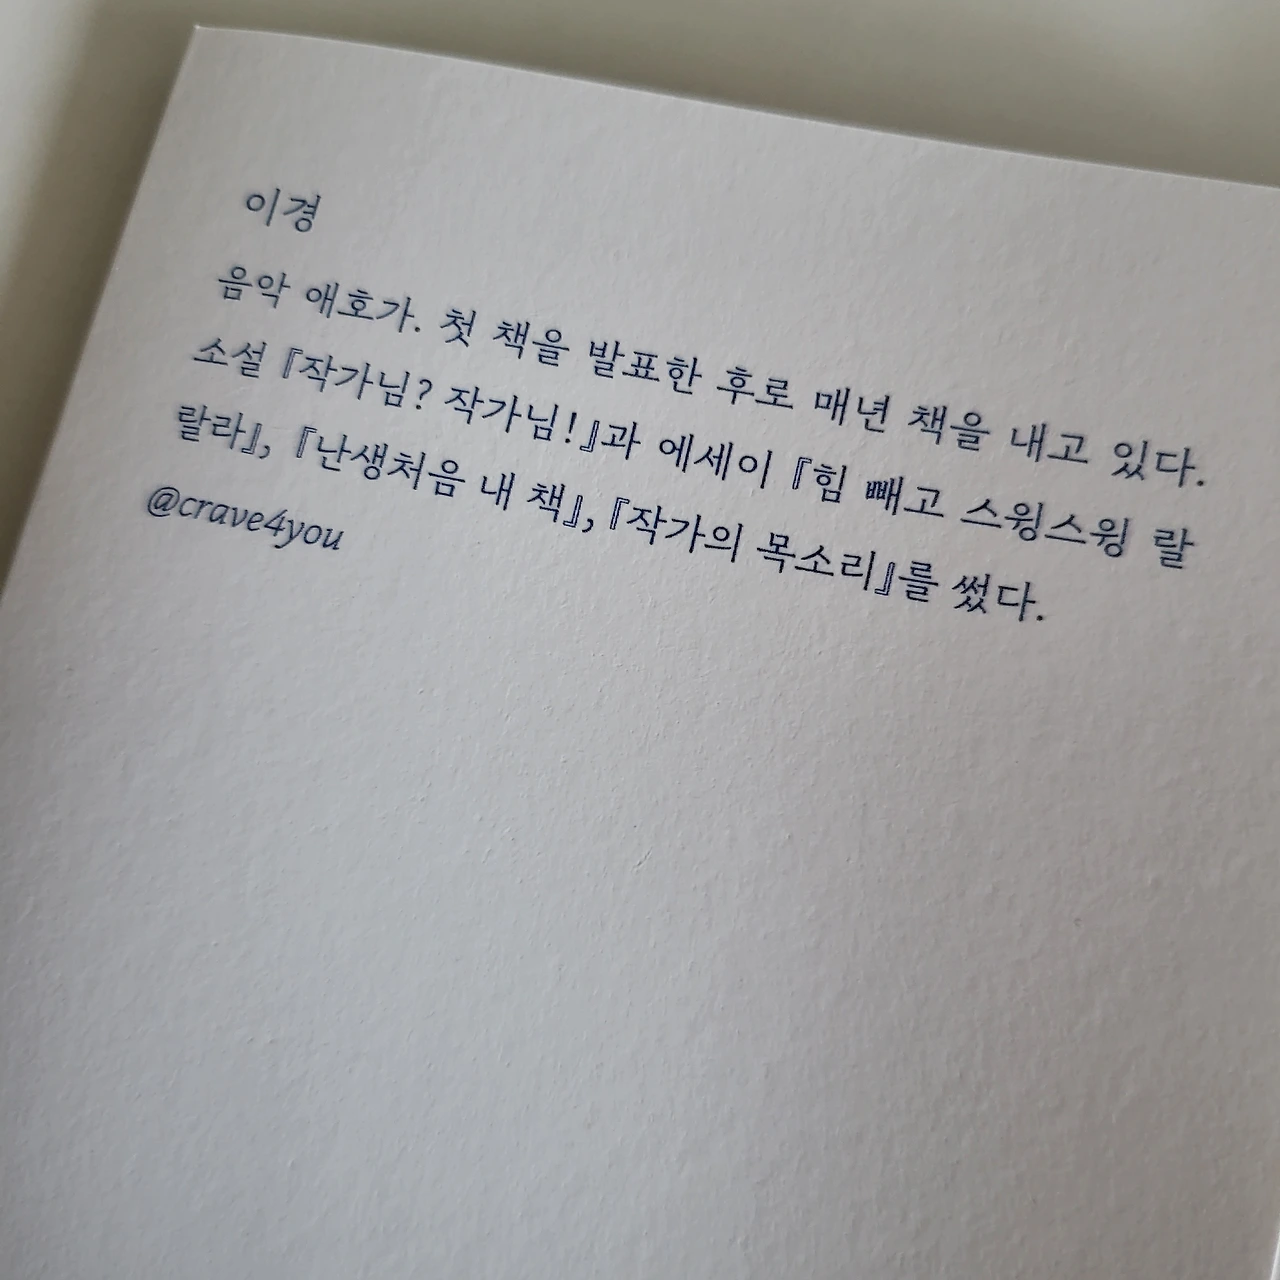 이경
음악 애호가. 첫 책을 발표한 후로 매년 책을 내고 있다.
소설 『작가님? 작가님!』과 에세이 『힘 빼고 스윙스윙 랄
랄라』, 『난생처음 내 책』, 『작가의 목소리』를 썼다.
@crave4you